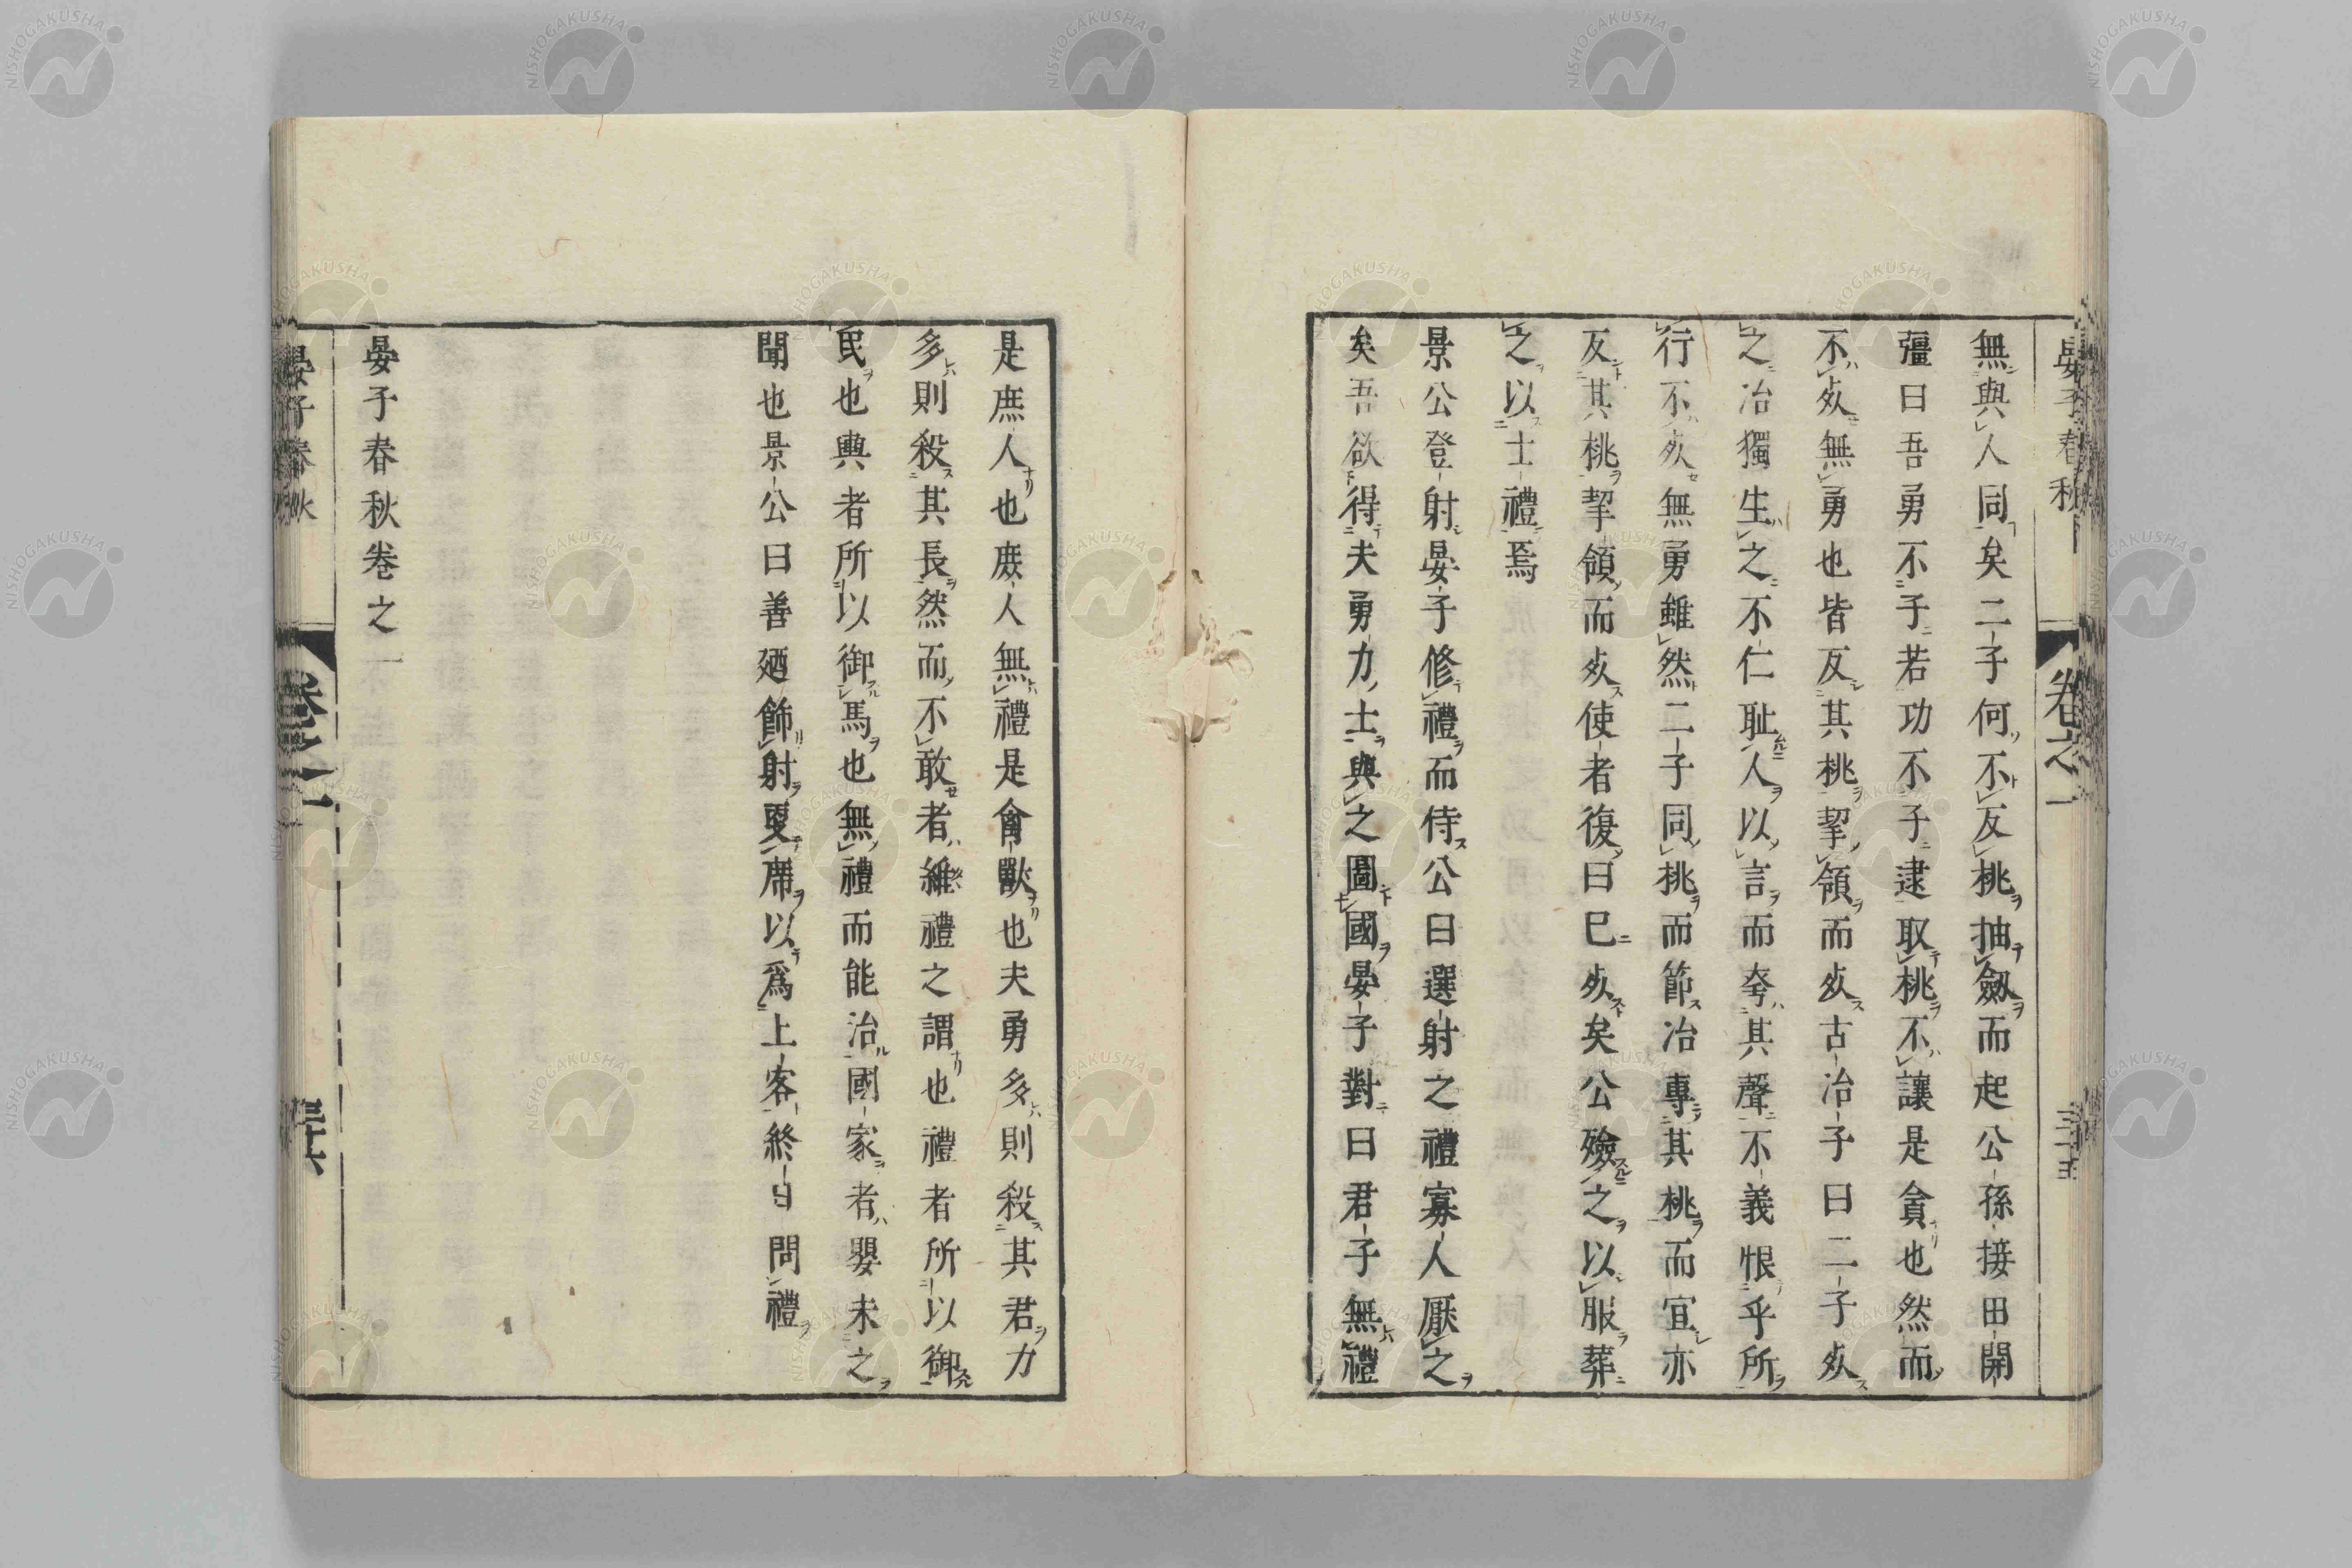 晏子春秋 卷之一 三十五
無與人同矣二子何不反桃抽劔而起公孫接田開
彊曰吾勇不子若功不子逮取桃不讓是貪也然而
不死無勇也皆反其桃挈領而死古冶子曰二子死
之冶獨生之不仁耻人以言而夸其聲不義恨乎所
行不死無勇雖然二子同桃而節冶專其桃而宜亦
反其桃挈領而死使者復曰已死矣公殮之以服葬
之以士禮焉
景公登射晏子修禮而侍公曰選射之禮寡人厭之
矣吾欲得夫勇力士與之圖國晏子對曰君子無禮
是庶人也庶人無禮是禽獸也夫勇多則殺其君力
多則殺其長然而不敢者維禮之謂也禮者所以御
民也轡者所以御馬也無禮而能治國家者嬰未之
聞也景公曰善廼飾射更席以爲上客終日問禮
晏子春秋卷之一
晏子春秋 卷之一 三十六
NISHOGAKUSHA